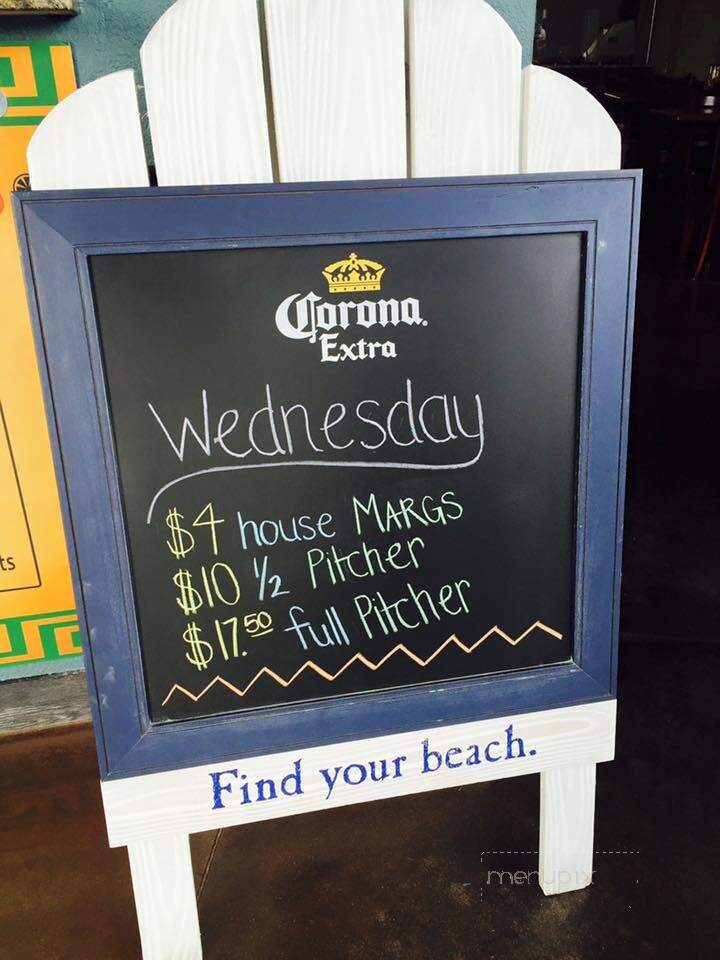 Corona.
Extra
Wednesday
$4 house MARGS
$10 ½ Pitcher
$17.50 full Pitcher
Find your beach.
ts
menupix